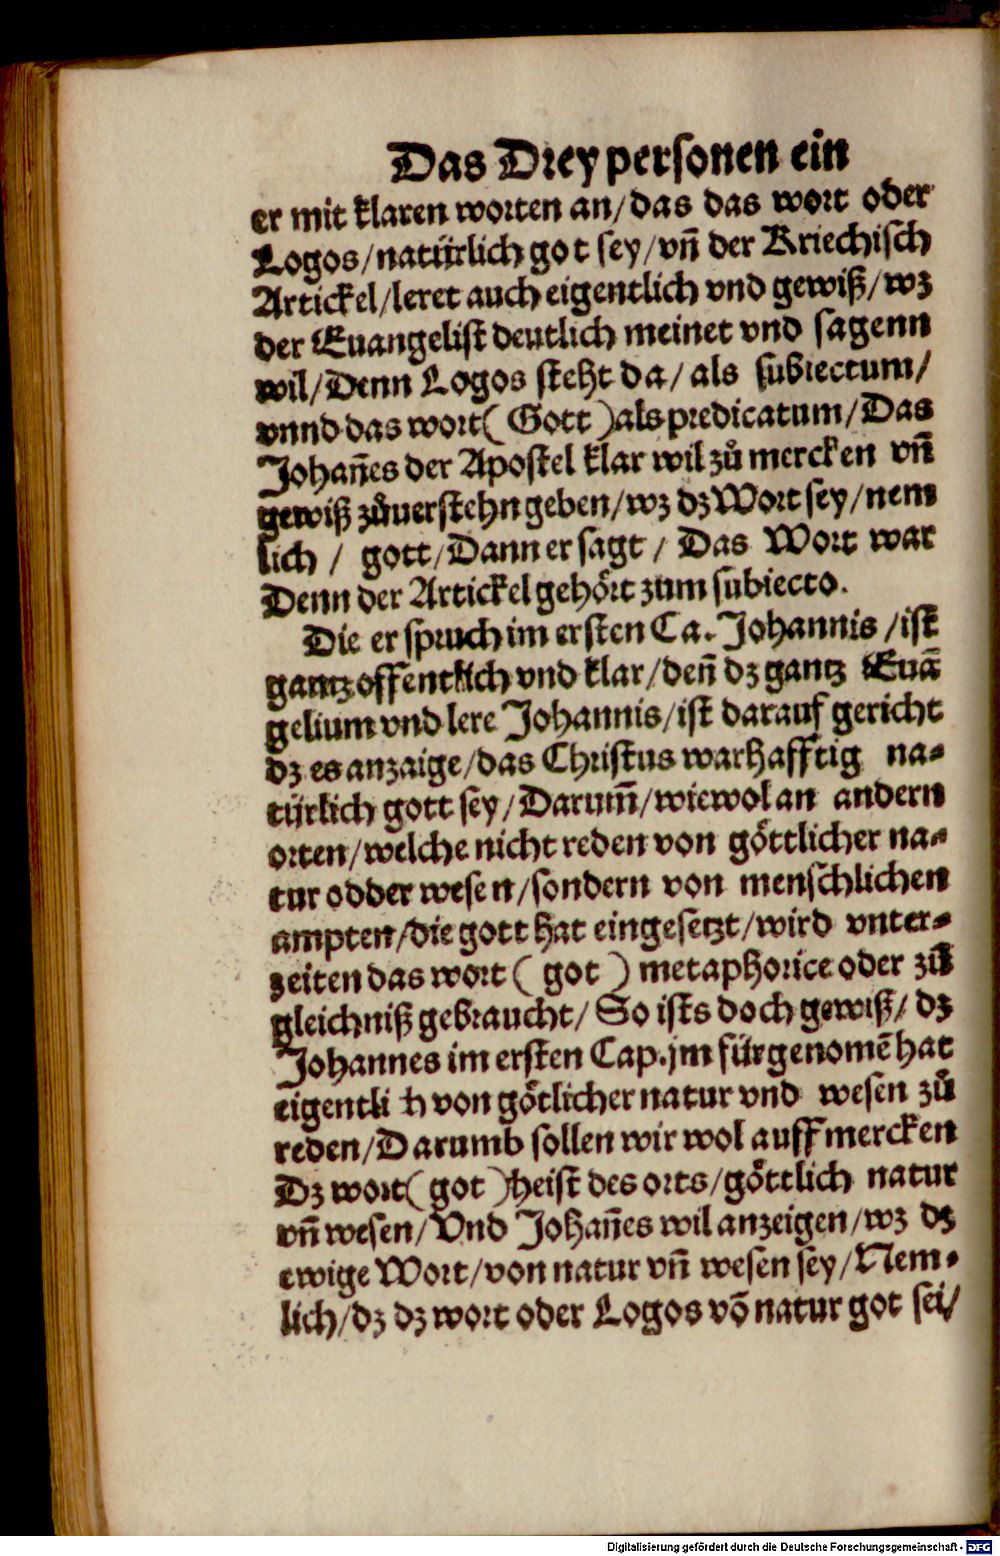 Das Drey personen ein
er mit klaren worten an/das das wort oder
Logos/natürlich got sey/vñ der Kriechisch
Artickel/leret auch eigentlich vnd gewiß/wz
der Euangelist deutlich meinet vnd sagenn
wil/Denn Logos steht da/als subiectum/
vnnd das wort( Gott )als predicatum/Das
Johañes der Apostel klar wil zů mercken vñ
gewiß zůuerstehn geben/wz dz Wort sey/nem
lich / gott/Dann er sagt / Das Wort war
Denn der Artickel gehört zum subiecto.
Die er spruch im ersten Ca. Johannis /ist
gantz offentlich vnd klar/deñ dz gantz Euã
gelium vnd lere Johannis/ist darauf gericht
dz es anzaige/das Christus warhafftig na-
türlich gott sey/Darum̃/wiewol an andern
orten/welche nicht reden von göttlicher na-
tur odder wesen/sondern von menschlichen
ampten/die gott hat eingesetzt/wird vnter-
zeiten das wort( got ) metaphorice oder zů
gleichniß gebraucht/ So ists doch gewiß/ dz
Johannes im ersten Cap.jm fürgenomẽ hat
eigentli h von götlicher natur vnd wesen zů
reden/Darumb sollen wir wol auff mercken
Dz wort( got )heist des orts/göttlich natur
vñ wesen/ Vnd Johañes wil anzeigen/wz dz
ewige Wort/von natur vñ wesen sey/Nem-
lich/dz dz wort oder Logos võ natur got sei/
Digitalisierung gefördert durch die Deutsche Forschungsgemeinschaft - DFG